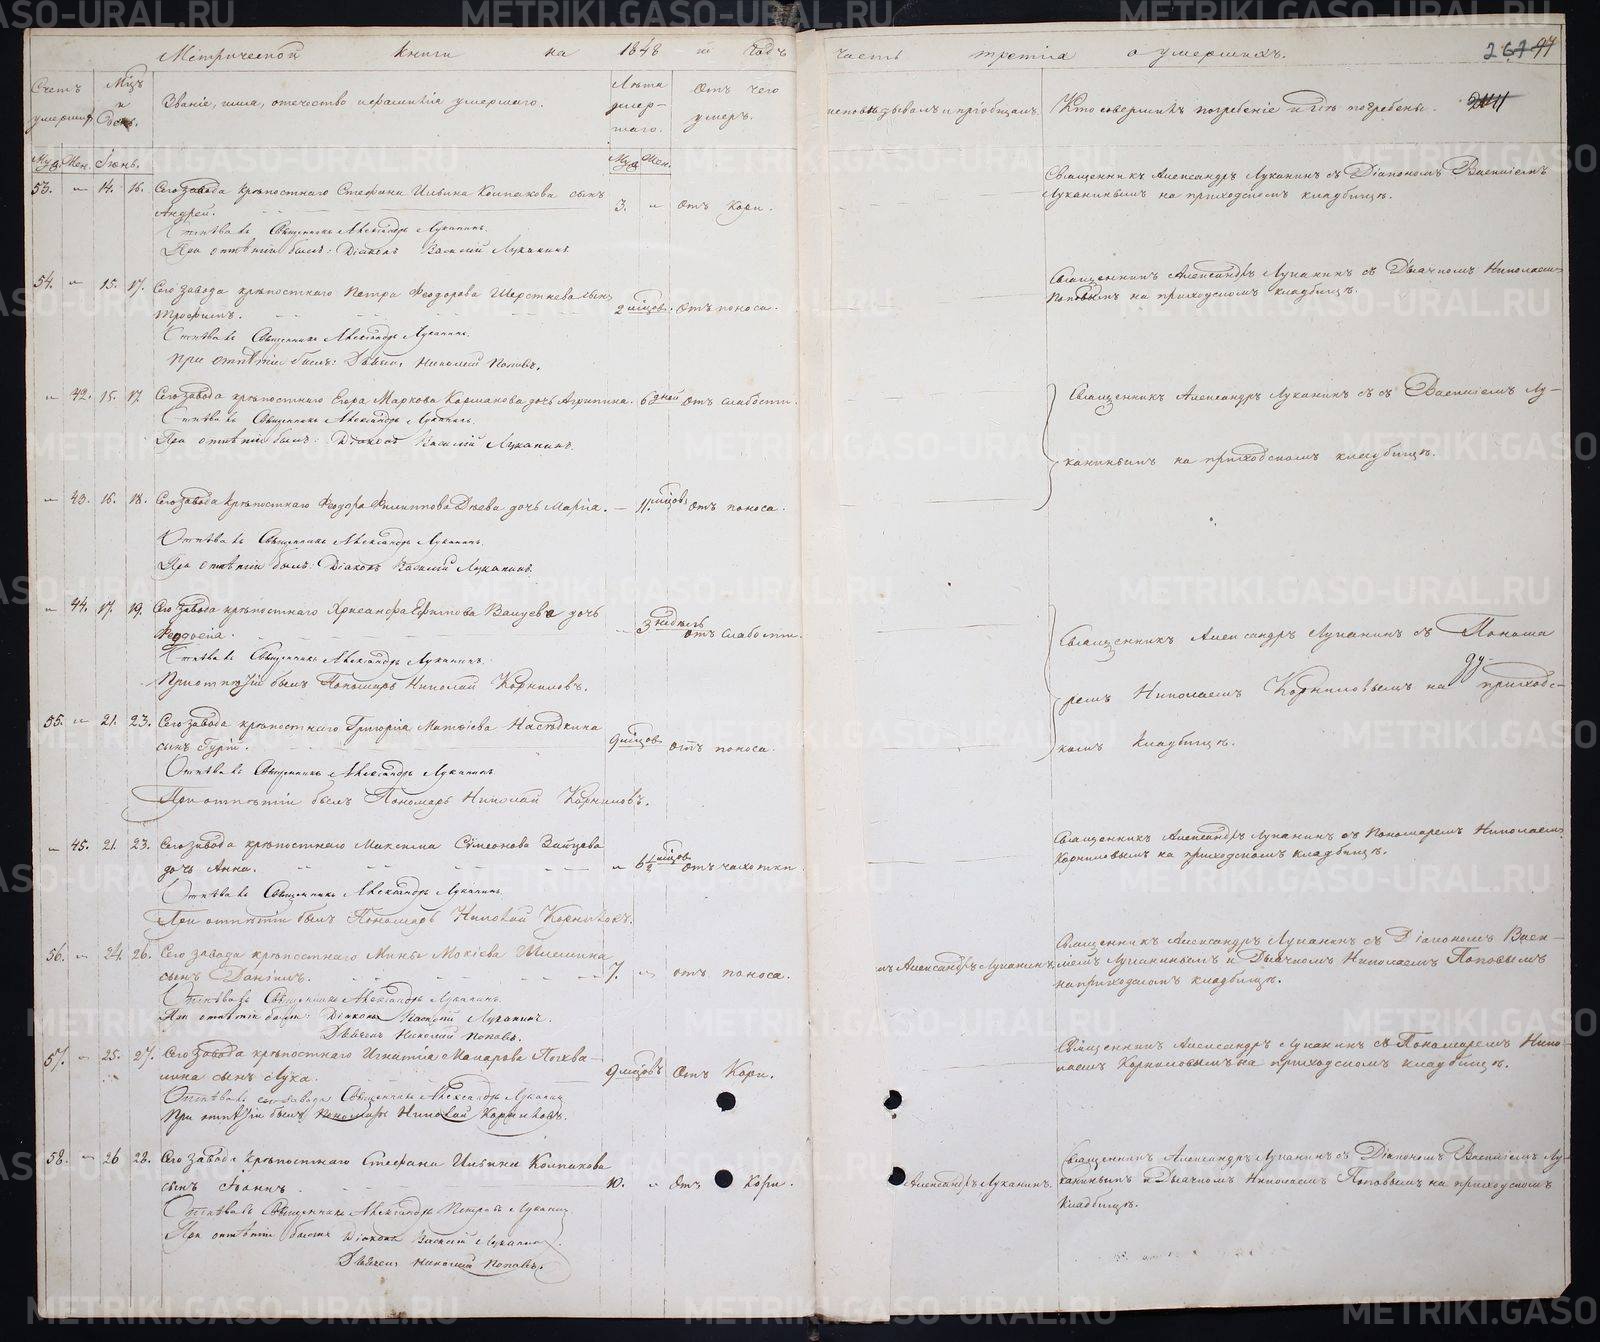 Метрической книги на 1848 й годъ
часть третія о умершихъ.
267 97
2441
Счетъ умершихъ
Мцъ и День.
Званіе, имя, отечество и фамилія умершаго.
Лѣта умершаго.
Отъ чего умеръ.
исповѣдывалъ и пріобщалъ.
Кто совершилъ погребеніе и гдѣ погребены.
Муж. Жен. Іюнь. Муж. Жен.
53. „ 14. 16. Сего завода крѣпостнаго Стефана Ильина Колпакова сынъ
Андрей. 3. „ Отъ Кори.
Отпѣвалъ Священникъ Александръ Луканинъ.
При отпѣтіи былъ: Діаконъ Василій Луканинъ
Священникъ Александръ Луканинъ съ Діакономъ Василіемъ
Луканинымъ на приходскомъ кладбищѣ.
54. „ 15. 17. Сего завода крѣпостнаго Петра Феодорова Шерстнева сынъ
Трофимъ. 2 мѣсяцов. Отъ поноса.
Отпѣвалъ Священникъ Александръ Луканинъ.
При отпѣтіи былъ: Дьячекъ Николай Поповъ.
Священникъ Александръ Луканинъ съ Дьячкомъ Николаемъ
Поповымъ на приходскомъ кладбищѣ.
„ 42. 15. 17. Сего завода крѣпостнаго Егора Маркова Корманова дочь Агрипина. 6 дней Отъ слабости.
Отпѣвалъ Священникъ Александръ Луканинъ.
При отпѣтіи былъ: Діаконъ Василій Луканинъ.
Священникъ Александръ Луканинъ съ съ Василіемъ Лу-
канинымъ на приходскомъ кладбищѣ.
„ 43. 16. 18. Сего завода крѣпостнаго Феодора Филиппова Дѣева дочь Марія. – 11. мѣсяцовъ Отъ поноса.
Отпѣвалъ Священникъ Александръ Луканинъ.
При отпѣтіи былъ: Діаконъ Василій Луканинъ.
„ 44. 17. 19. Сего завода крѣпостнаго Хрисанфа Ефимова Валуева дочь
Феодосія. – 3 недѣль отъ слабости.
Отпѣвалъ Священникъ Александръ Луканинъ.
При отпѣтіи былъ Пономарь Николай Корниловъ.
Священникъ Александръ Луканинъ съ Понома
ремъ Николаемъ Корниловымъ на приходс-
комъ кладбищѣ.
55. „ 21. 23. Сего завода крѣпостнаго Григорія Матвѣева Насѣдкина
сынъ Гурій. 9 мѣсяцов отъ поноса.
Отпѣвалъ Священникъ Александръ Луканинъ
При отпѣтіи былъ Пономарь Николай Корниловъ.
„ 45. 21. 23. Сего завода крѣпостнаго Максима Сѵмеонова Зайцева
дочь Анна. „ 6½ мѣсяцов Отъ чахотки.
Отпѣвалъ Священникъ Александръ Луканинъ.
При отпѣтіи былъ Пономарь Николай Корниловъ.
Священникъ Александръ Луканинъ съ Пономаремъ Николаемъ
Корниловымъ на приходскомъ кладбищѣ.
56. „ 24. 26. Сего завода крѣпостнаго Мины Мокіева
сынъ Даніилъ. 7. „ отъ поноса.
Отпѣвалъ Священникъ Александръ Луканинъ.
При отпѣтіи были: Діаконъ Василій Луканинъ.
Дьячекъ Николай Поповъ.
Александръ Луканинъ.
Священникъ Александръ Луканинъ съ Діакономъ Васи-
ліемъ Луканинымъ и Дьячкомъ Николаемъ Поповымъ
на приходскомъ кладбищѣ.
57. „ 25. 27. Сего завода крѣпостнаго Игнатія Макарова Похва-
лина сынъ Лука. 9 мѣсяцовъ Отъ Кори.
Отпѣвалъ Священникъ Александръ Луканинъ
При отпѣтіи былъ Пономарь Николай Корниловъ.
Священникъ Александръ Луканинъ съ Пономаремъ Нико-
лаемъ Корниловымъ на приходскомъ кладбищѣ.
58. „ 26 28. Сего завода крѣпостнаго Стефана Ильина Колпакова
сынъ Іоаннъ. 10. „ Отъ Кори.
Отпѣвалъ Священникъ Александръ Петровъ Луканинъ
При отпѣтіи были Діаконъ Василій Луканинъ.
Дьячекъ Николай Поповъ.
Александръ Луканинъ.
Священникъ Александръ Луканинъ съ Діакономъ Василіемъ Лу-
канинымъ и Дьячкомъ Николаемъ Поповымъ на приходскомъ
кладбищѣ.
METRIKI.GASO-URAL.RU